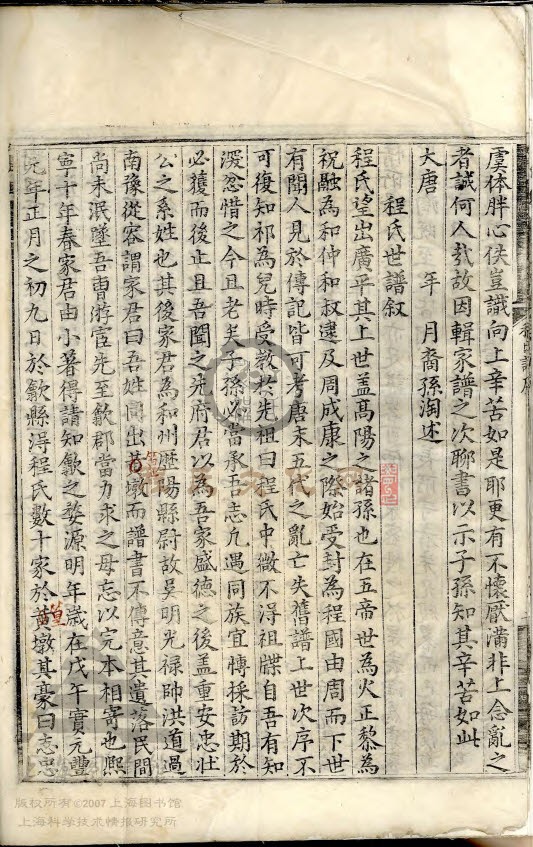 虛体胖心佚豈識向上辛苦如是耶更有不懷厭滿非上念亂之
者誠何人㦲故因輯家譜之次聊書以示子孫知其辛苦如此
大唐 年 月裔孫淘述
程氏世譜叙
程氏望出廣平其上世盖髙陽之諸孫也在五帝世為火正黎為
祝融為和仲和叔逮及周成康之際始受封為程國由周而下世
有聞人見於傳記皆可考唐末五代之亂亡失舊譜上世次序不
可復知祁為兒時受教於先祖曰程氏中微不淂祖牒自吾有知
深忿惜之今且老矣子孫必當承吾志凢遇同族宜博採訪期於
必獲而後止且吾聞之先府君以為吾家盛德之後盖重安忠壯
公之系姓也其後家君為和州歷陽縣尉故吳明光禄帥洪道過
南豫從容謂家君曰吾姓同出黄墩而譜書不傳意其遺落民間
尚未泯墜吾曹游宦先至歙郡當力求之毋忘以完本相寄也熈
寧十年春家君由小著得請知歙之婺源明年歲在戊午實元豐
元年正月之初九日於歙縣淂程氏數十家於黃墩其豪曰志忠
版权所有©2007 上海图书馆
上海科学技术情报研究所